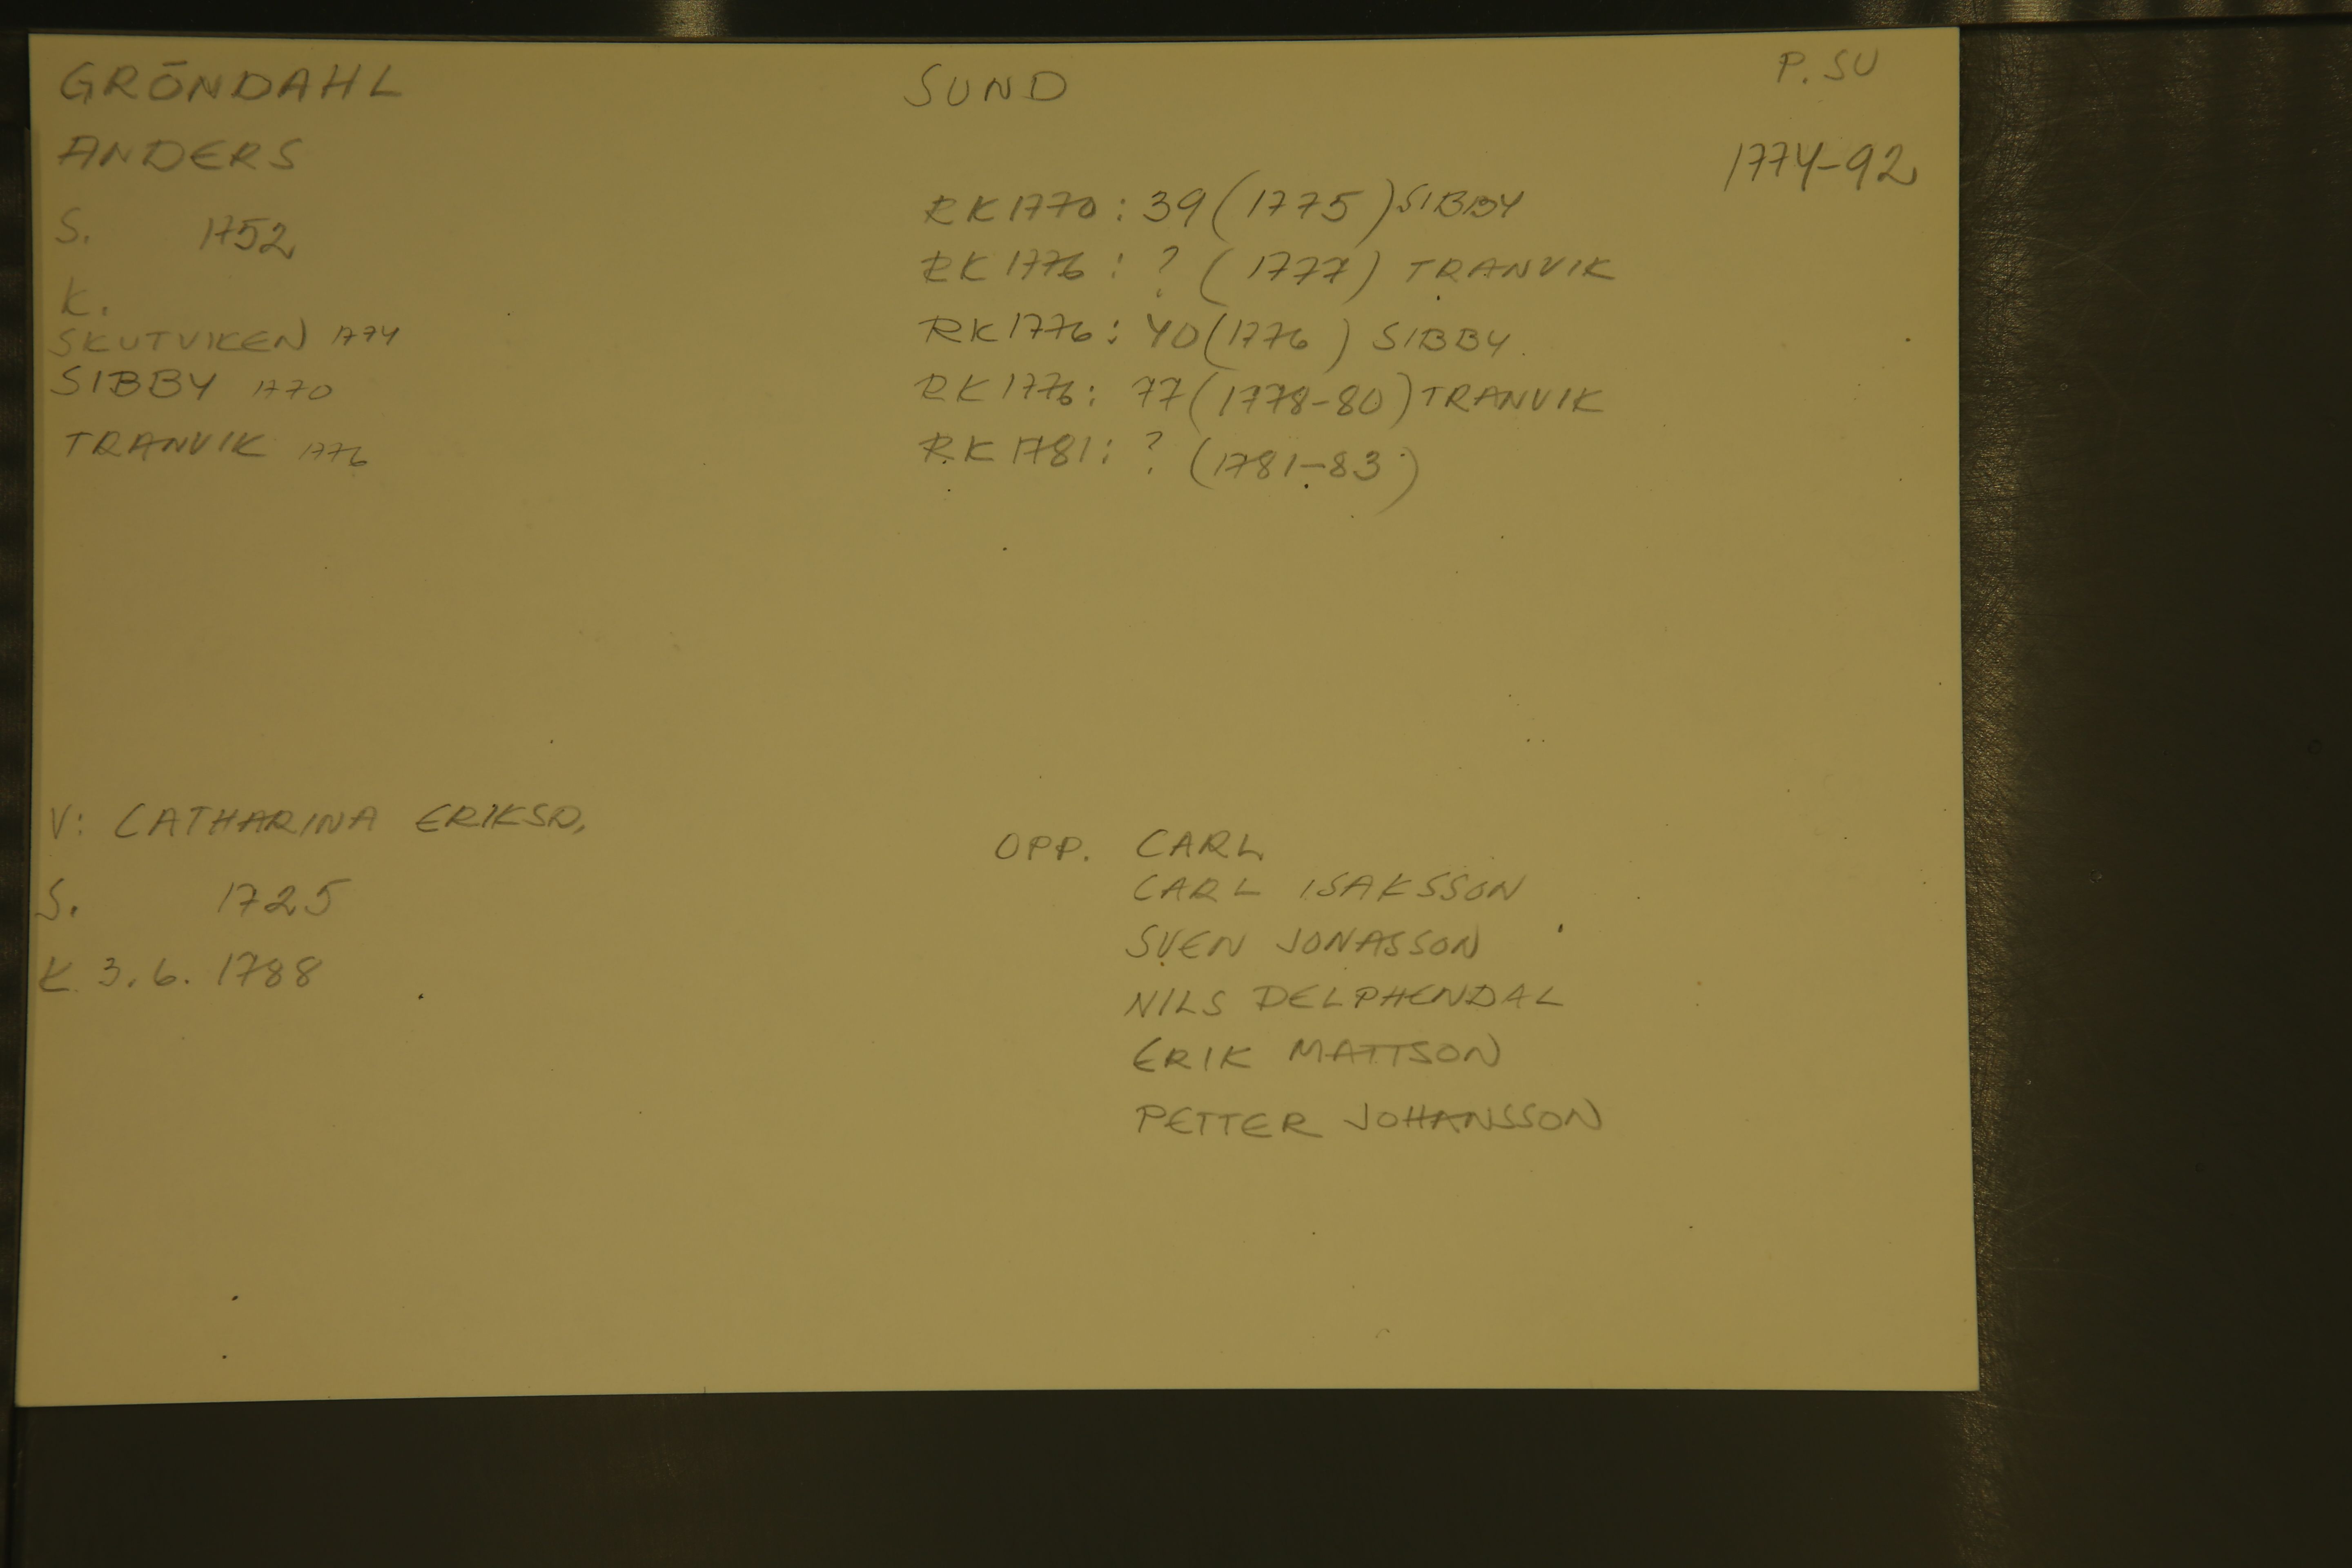 GRÖNDAHL
ANDERS
S. 1752
K.
SKUTVIKEN 1774
SIBBY 1770
TRANVIK 1776
SUND
P. SU
1774-92
RK 1770: 39 (1775) SIBBY
RK 1776: ? (1777) TRANVIK
RK 1776: 40 (1776) SIBBY.
RK 1776: 77 (1778-80) TRANVIK
RK 1781: ? (1781-83)
V: CATHARINA ERIKSD.
S. 1725
K 3.6. 1788
OPP. CARL
CARL ISAKSSON
SVEN JONASSON
NILS DELPHENDAL
ERIK MATTSON
PETTER JOHANSSON